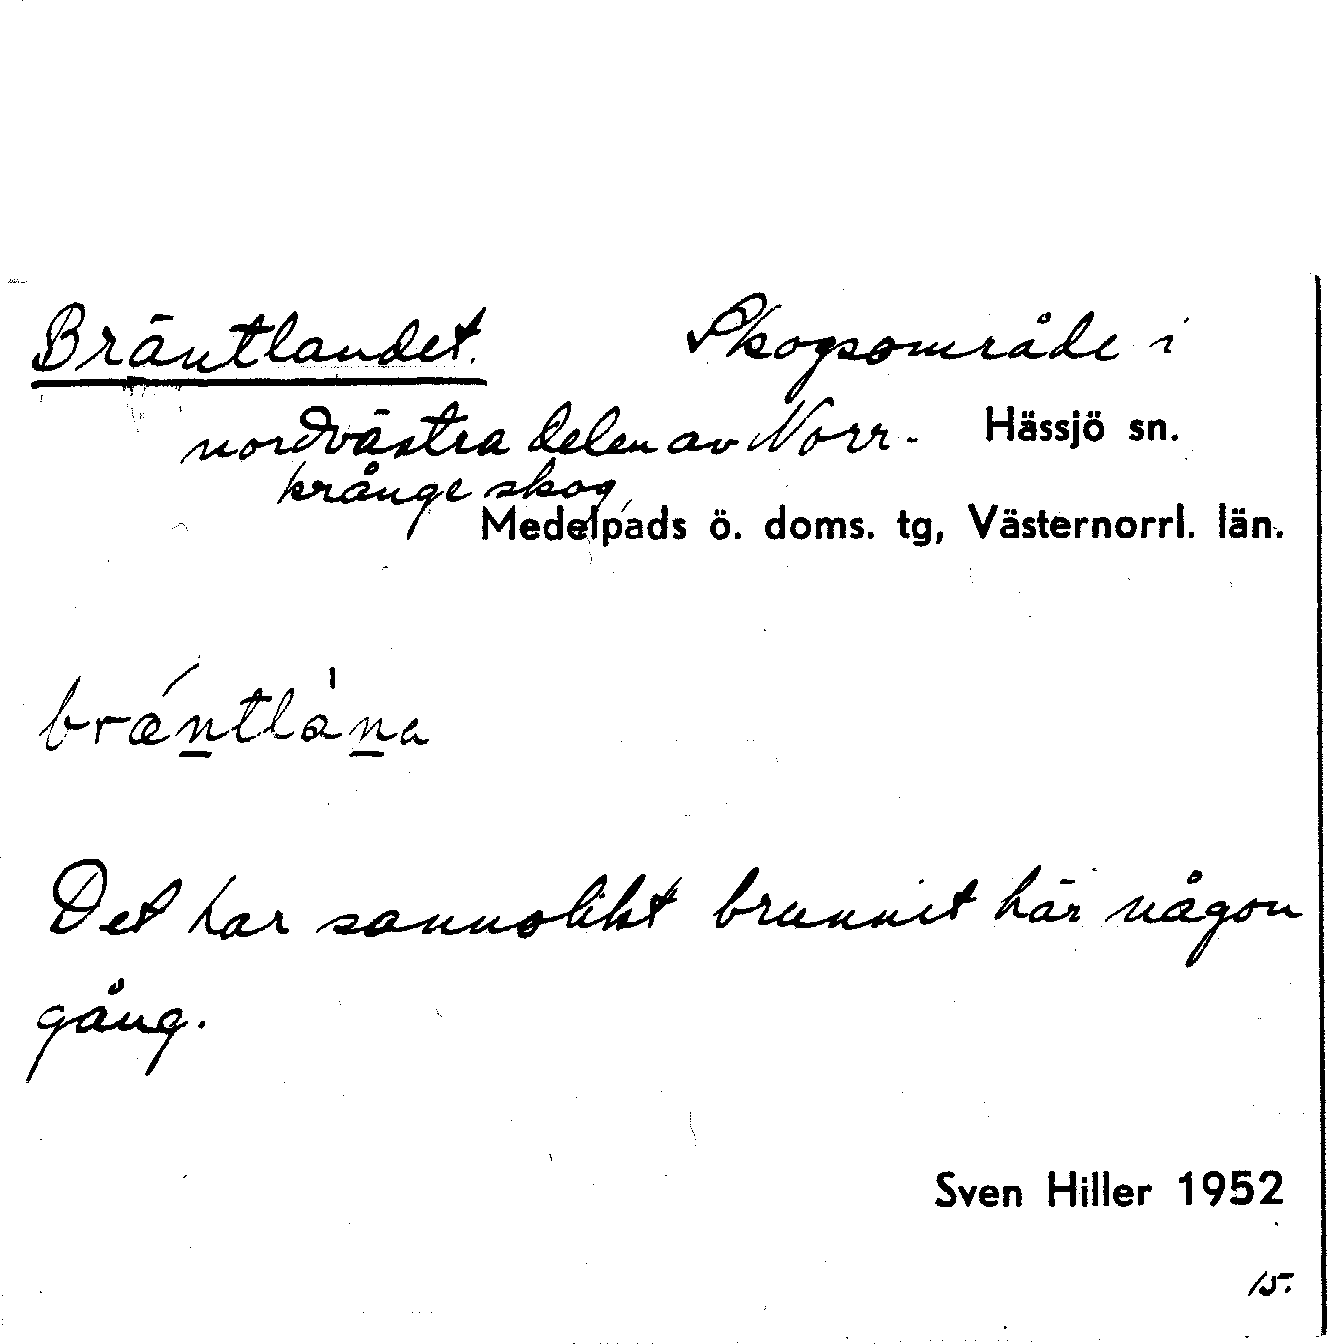 Bräntlandet. Skogsområde i
nordvästra delen av Norr- Hässjö sn.
krånge skog,
Medelpads ö. doms. tg, Västernorrl. län.
brǽn̲tlàn̲a
Det har sannolikt brunnit här någon
gång.
Sven Hiller 1952
15.